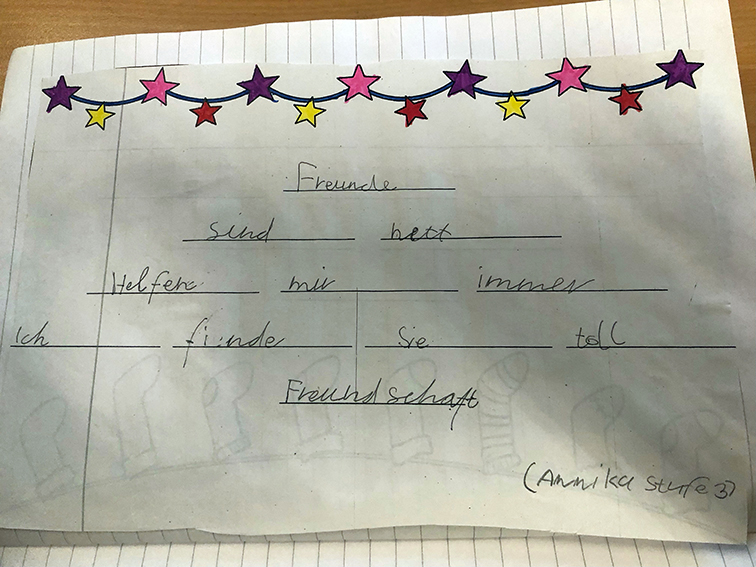 Freunde
sind nett
Helfen mir immer
Ich finde Sie toll
Freundschaft
(Annika Stufe 3)